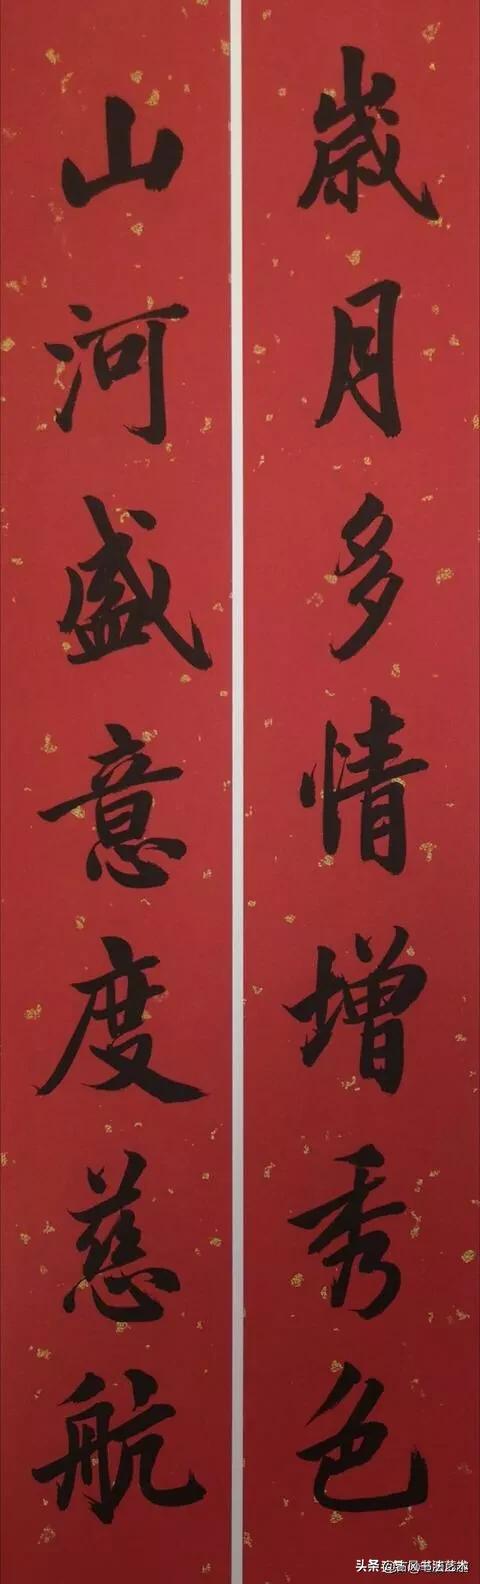 歳月多情增秀色
山河盛意度慈航
头条@古风书法艺术